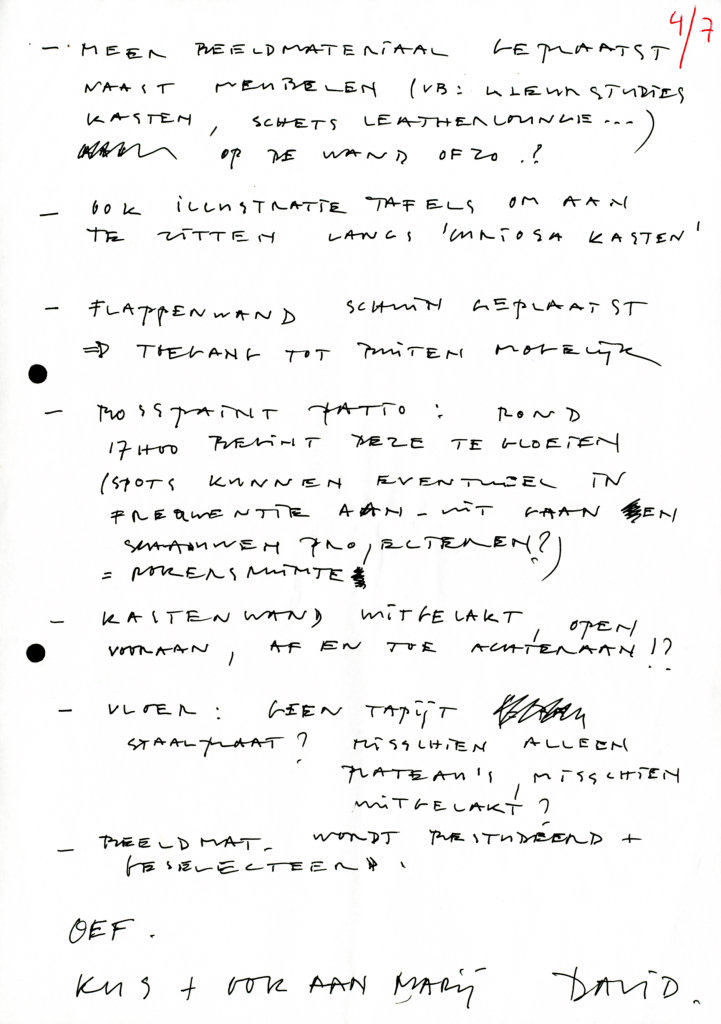 4/7
- MEER BEELDMATERIAAL GEPLAATST
NAAST MEUBELEN (VB: KLEURSTUDIES
KASTEN, SCHETS LEATHERLOUNGE...)
OP DE WAND OFZO.?
- OOK ILLUSTRATIE TAFELS OM AAN
TE ZITTEN LANGS 'CURIOSA KASTEN'
- FLAPPENWAND SCHUIN GEPLAATST
⇒ TOEGANG TOT BUITEN MOGELIJK
- ROSSPAINT PATIO: ROND
17H00 BEGINT DEZE TE GLOEIEN
(SPOTS KUNNEN EVENTUEEL IN
FREQUENTIE AAN-UIT GAAN EN
SCHADUWEN PROJECTEREN?)
= ROKERSRUIMTE
- KASTENWAND UITGELAKT, OPEN
VOORAAN, AF EN TOE ACHTERAAN!?
- VLOER: GEEN TAPIJT
STAALPLAAT? MISSCHIEN ALLEEN
PLATEAU'S, MISSCHIEN
UITGELAKT?
- BEELDMAT. WORDT BESTUDEERD +
GESELECTEERD.
OEF.
KUS + OOK AAN MARIJ DAVID.